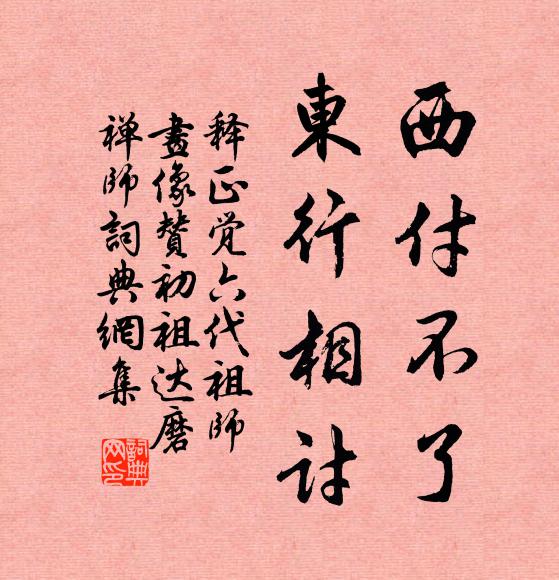 西付不了
東行相討
释正觉六代祖師
畫像贊初祖达磨
禅師詞典網集
詞典網印